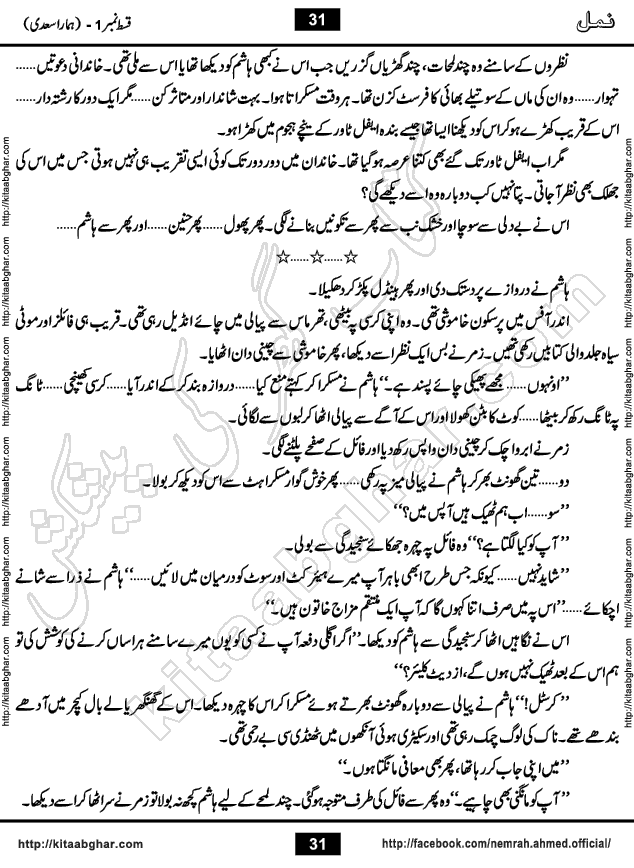 نمل
31
قسط نمبر 1 - (ہمارا سعدی)
نظروں کے سامنے وہ چند لمحات، چند گھڑیاں گزریں جب اس نے کبھی ہاشم کو دیکھا تھا یا اس سے ملی تھی۔ خاندانی دعوتیں......
تہوار......وہ ان کی ماں کے سوتیلے بھائی کا فرسٹ کزن تھا۔ ہر وقت مسکراتا ہوا۔ بہت شاندار اور متاثر کن......مگر ایک دور کا رشتہ دار......
اس کے قریب کھڑے ہو کر اس کو دیکھنا ایسا تھا جیسے بندہ ایفل ٹاور کے نیچے ہجوم میں کھڑا ہو۔
مگر اب ایفل ٹاور تک گئے بھی کتنا عرصہ ہو گیا تھا۔ خاندان میں دور دور تک کوئی ایسی تقریب ہی نہیں ہوتی جس میں اس کی
جھلک بھی نظر آ جاتی۔ پتا نہیں کب دوبارہ وہ اسے دیکھے گی؟
اس نے بے دلی سے سوچا اور خشک نب سے پھر سے تکونیں بنانے لگی۔ پھر پھول......پھر حنین......اور پھر سے ہاشم......
☆......☆......☆
ہاشم نے دروازے پر دستک دی اور پھر ہینڈل پکڑ کر دھکیلا۔
اندر آفس میں پرسکون خاموشی تھی۔ وہ اپنی کرسی پہ بیٹھی، تھرماس سے پیالی میں چائے انڈیل رہی تھی۔ قریب ہی فائلز اور موٹی
سیاہ جلد والی کتابیں رکھی تھیں۔ زمر نے بس ایک نظر اسے دیکھا، پھر خاموشی سے چینی دان اٹھایا۔
’’اونہوں...... مجھے پھیکی چائے پسند ہے۔‘‘ ہاشم نے مسکرا کر کہتے منع کیا......دروازہ بند کر کے اندر آیا......کرسی کھینچی......ٹانگ
پہ ٹانگ رکھ کر بیٹھا......کوٹ کا بٹن کھولا اور اس کے آگے سے پیالی اٹھا کر لبوں سے لگائی۔
زمر نے ابرو اچکا کر چینی دان واپس رکھ دیا اور فائل کے صفحے پلٹنے لگی۔
دو......تین گھونٹ بھر کر ہاشم نے پیالی میز پہ رکھی......پھر خوش گوار مسکراہٹ سے اس کو دیکھ کر بولا۔
’’سو......اب ہم ٹھیک ہیں آپس میں؟‘‘
’’آپ کو کیا لگتا ہے؟‘‘ وہ فائل پہ چہرہ جھکائے سنجیدگی سے بولی۔
’’شاید نہیں......کیونکہ جس طرح ابھی باہر آپ میرے ہیئر کٹ اور سوٹ کو درمیان میں لائیں......‘‘ ہاشم نے ذرا سے شانے
اچکائے......’’اس پہ میں صرف اتنا کہوں گا کہ آپ ایک منتقم مزاج خاتون ہیں۔‘‘
اس نے نگاہیں اٹھا کر سنجیدگی سے ہاشم کو دیکھا۔ ’’اگر اگلی دفعہ آپ نے کسی کو یوں میرے سامنے ہراساں کرنے کی کوشش کی تو
ہم اس کے بعد ٹھیک نہیں ہوں گے، از دیٹ کلیئر؟‘‘
’’کرسٹل!‘‘ ہاشم نے پیالی سے دوبارہ گھونٹ بھرتے ہوئے مسکرا کر اس کا چہرہ دیکھا۔ اس کے گھنگھریالے بال کیچر میں آدھے
بندھے تھے۔ ناک کی لونگ چمک رہی تھی اور سکیڑی ہوئی آنکھوں میں ٹھنڈی سی بے رحمی تھی۔
’’میں اپنی جاب کر رہا تھا، پھر بھی معافی مانگتا ہوں۔‘‘
’’آپ کو مانگنی بھی چاہیے۔‘‘ وہ پھر سے فائل کی طرف متوجہ ہو گئی۔ چند لمحے کے لیے ہاشم کچھ نہ بولا تو زمر نے سر اٹھا کر اسے دیکھا۔
کتاب گھر کی پیشکش
kitaabghar.com
http://kitaabghar.com http://kitaabghar.com http://kitaabghar.com http://kitaabghar.com http://kitaabghar.com http://kitaabghar.com
http://kitaabghar.com http://kitaabghar.com http://kitaabghar.com http://kitaabghar.com http://kitaabghar.com http://kitaabghar.com
http://kitaabghar.com
31
http://facebook.com/nemrah.ahmed.official/